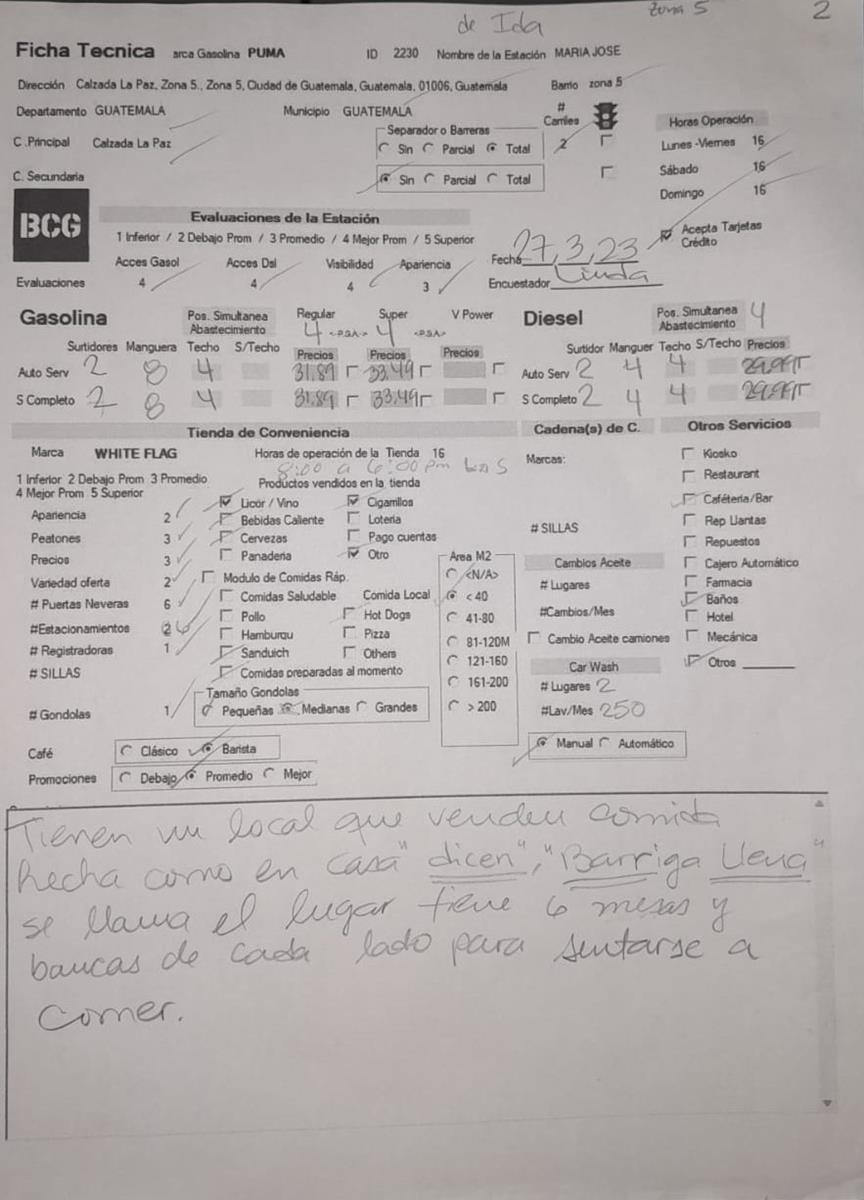 de Ida
Zona 5
2
Ficha Tecnica arca Gasolina PUMA ID 2230 Nombre de la Estación MARIA JOSE
Dirección Calzada La Paz, Zona 5., Zona 5, Ciudad de Guatemala, Guatemala, 01006, Guatemala Barrio zona 5
Departamento GUATEMALA Municipio GUATEMALA # Carriles
Horas Operación
C .Principal Calzada La Paz Separador o Barreras Sin Parcial Total 2 Lunes -Viernes 16
C. Secundaria Sin Parcial Total Sábado 16
Domingo 16
BCG
Evaluaciones de la Estación
1 Inferior / 2 Debajo Prom / 3 Promedio / 4 Mejor Prom / 5 Superior
Fecha 27,3,23
Acepta Tarjetas Crédito
Acces Gasol Acces Dsl Visibilidad Apariencia
Encuestador Linda
Evaluaciones 4 4 4 3
Gasolina Pos. Simultanea Abastecimiento Regular Super V Power
4 <PSA> 4 <PSA>
Diesel Pos. Simultanea Abastecimiento 4
Surtidores Manguera Techo S/Techo Precios Precios Precios
Surtidor Manguer Techo S/Techo Precios
Auto Serv 2 8 4 31,89 33,49
Auto Serv 2 4 4 29,99
S Completo 2 8 4 31,89 33,49
S Completo 2 4 4 29,99
Tienda de Conveniencia
Cadena(s) de C.
Otros Servicios
Marca WHITE FLAG Horas de operación de la Tienda 16
8:00 a 6:00 pm
1 Inferior 2 Debajo Prom 3 Promedio
4 Mejor Prom 5 Superior
Productos vendidos en la tienda
Apariencia 2
Peatones 3
Precios 3
Variedad oferta 2
# Puertas Neveras 6
#Estacionamientos 2 6
# Registradoras 1
# SILLAS
# Gondolas 1
Licor / Vino Cigarrillos
Bebidas Caliente Loteria
Cervezas Pago cuentas
Panaderia Otro
Modulo de Comidas Ráp.
Comidas Saludable Comida Local
Pollo Hot Dogs
Hamburqu Pizza
Sanduich Others
Comidas preparadas al momento
Tamaño Gondolas
Pequeñas Medianas Grandes
Area M2
<N/A>
< 40
41-80
81-120M
121-160
161-200
> 200
Marcas:
# SILLAS
Cambios Aceite
# Lugares
#Cambios/Mes
Cambio Aceite camiones
Car Wash
# Lugares 2
#Lav/Mes 250
Manual Automático
Kiosko
Restaurant
Caféteria/Bar
Rep Llantas
Repuestos
Cajero Automático
Farmacia
Baños
Hotel
Mecánica
Otros
Café Clásico Barista
Promociones Debajo Promedio Mejor
Tienen un local que venden comida
hecha como en casa "dicen", "Barriga Llena"
se llama el lugar tiene 6 mesas y
bancas de cada lado para sentarse a
comer.